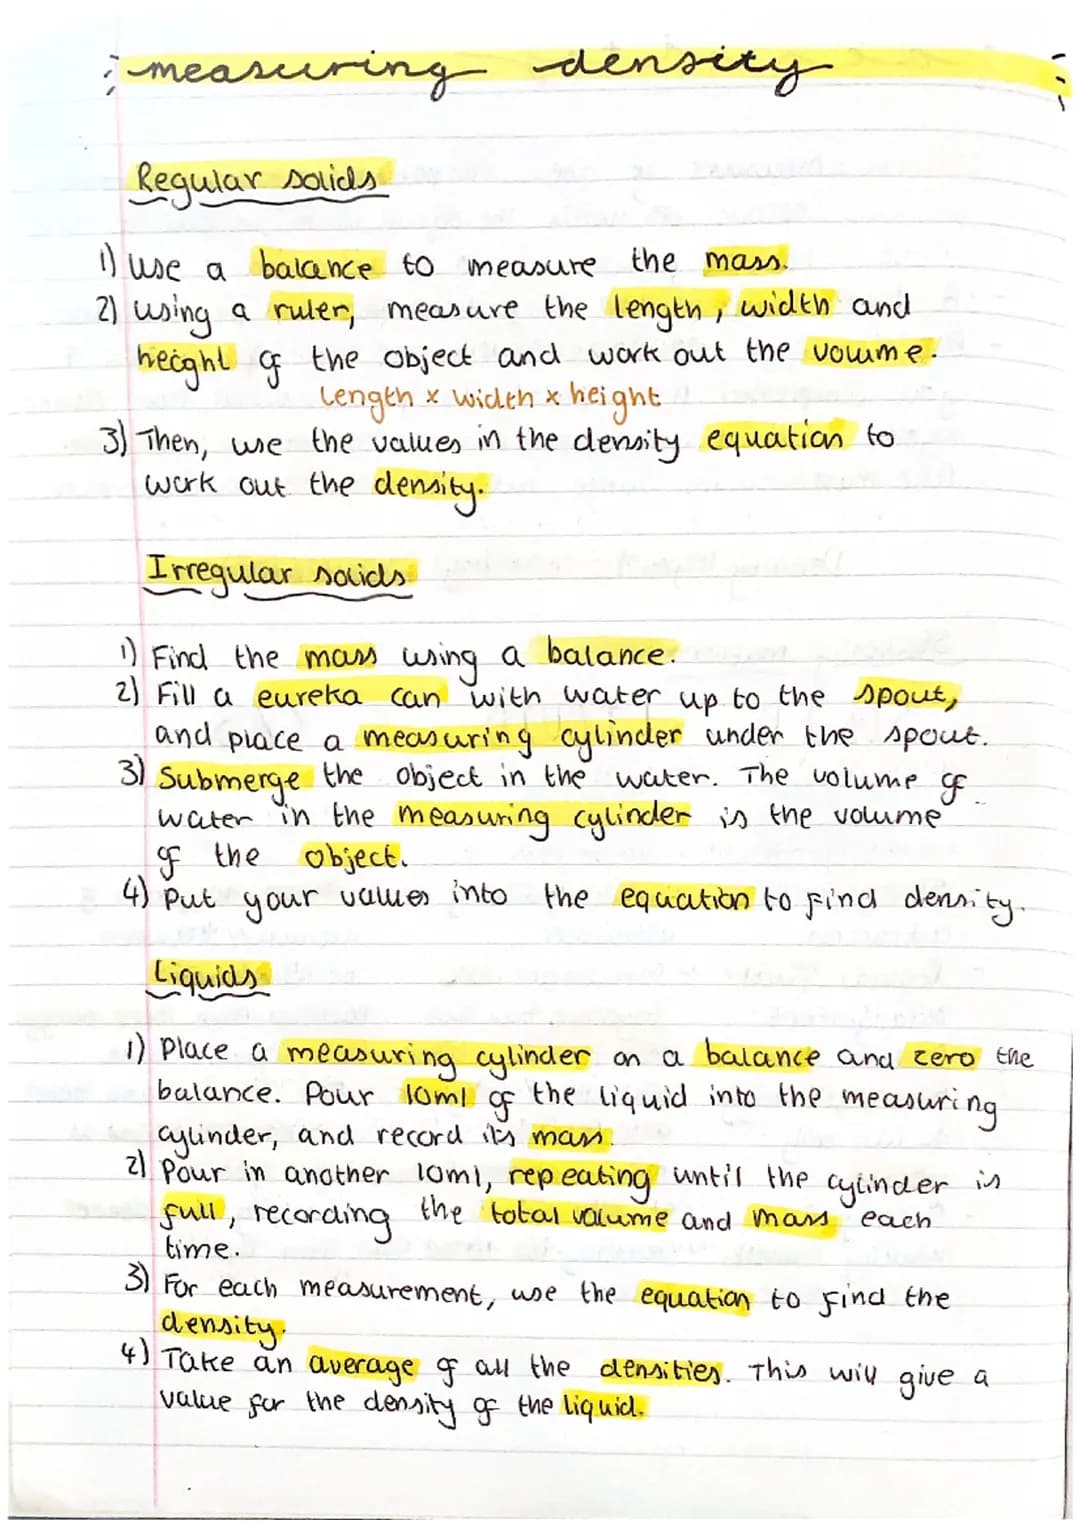 measuring density
Regular solids
1) Use a balance to measure the mass.
2) Using a ruler, measure the length, width and
height of the object and work out the volume.
length x width x height
3) Then, use the values in the density equation to
work out the density.
Irregular solids
1) Find the mass using a balance.
2) Fill a eureka can with water up to the spout,
and place a measuring cylinder under the spout.
3) Submerge the object in the water. The volume of
water in the measuring cylinder is the volume
of the object.
4) Put your values into the equation to find density.
Liquids
1) Place a measuring cylinder on a balance and zero the
balance. Pour 10ml of the liquid into the measuring
cylinder, and record its mass.
2) Pour in another 10ml, repeating until the cylinder is
full, recording the total volume and mass each
time.
3) For each measurement, use the equation to find the
density.
4) Take an average of all the densities. This will give a
value for the density of the liquid.